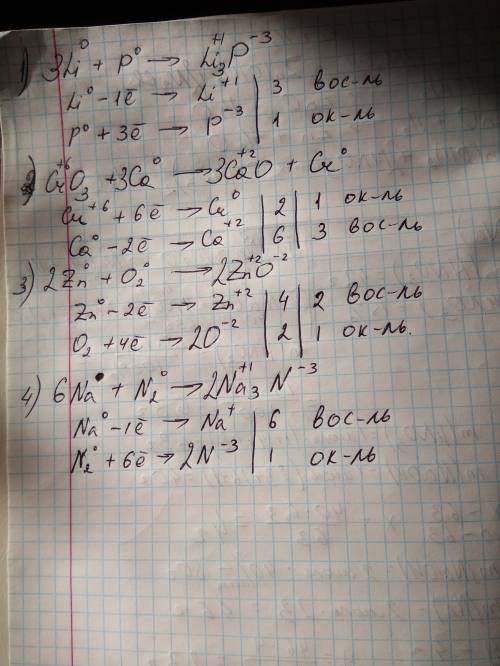 1) 3Li⁰ + P⁰ → Li₃⁺¹P⁻³
Li⁰ - 1ē → Li⁺¹ | 3 вос-ль
P⁰ + 3ē → P⁻³ | 1 ок-ль
2) Cr⁺⁶O₃ + 3Ca⁰ → 3Ca⁺²O + Cr⁰
Cr⁺⁶ + 6ē → Cr⁰ | 2 | 1 ок-ль
Ca⁰ - 2ē → Ca⁺² | 6 | 3 вос-ль
3) 2Zn⁰ + O₂⁰ → 2Zn⁺²O⁻²
Zn⁰ - 2ē → Zn⁺² | 4 | 2 вос-ль
O₂ + 4ē → 2O⁻² | 2 | 1 ок-ль.
4) 6Na⁰ + N₂⁰ → 2Na₃⁺¹N⁻³
Na⁰ - 1ē → Na⁺ | 6 вос-ль
N₂⁰ + 6ē → 2N⁻³ | 1 ок-ль